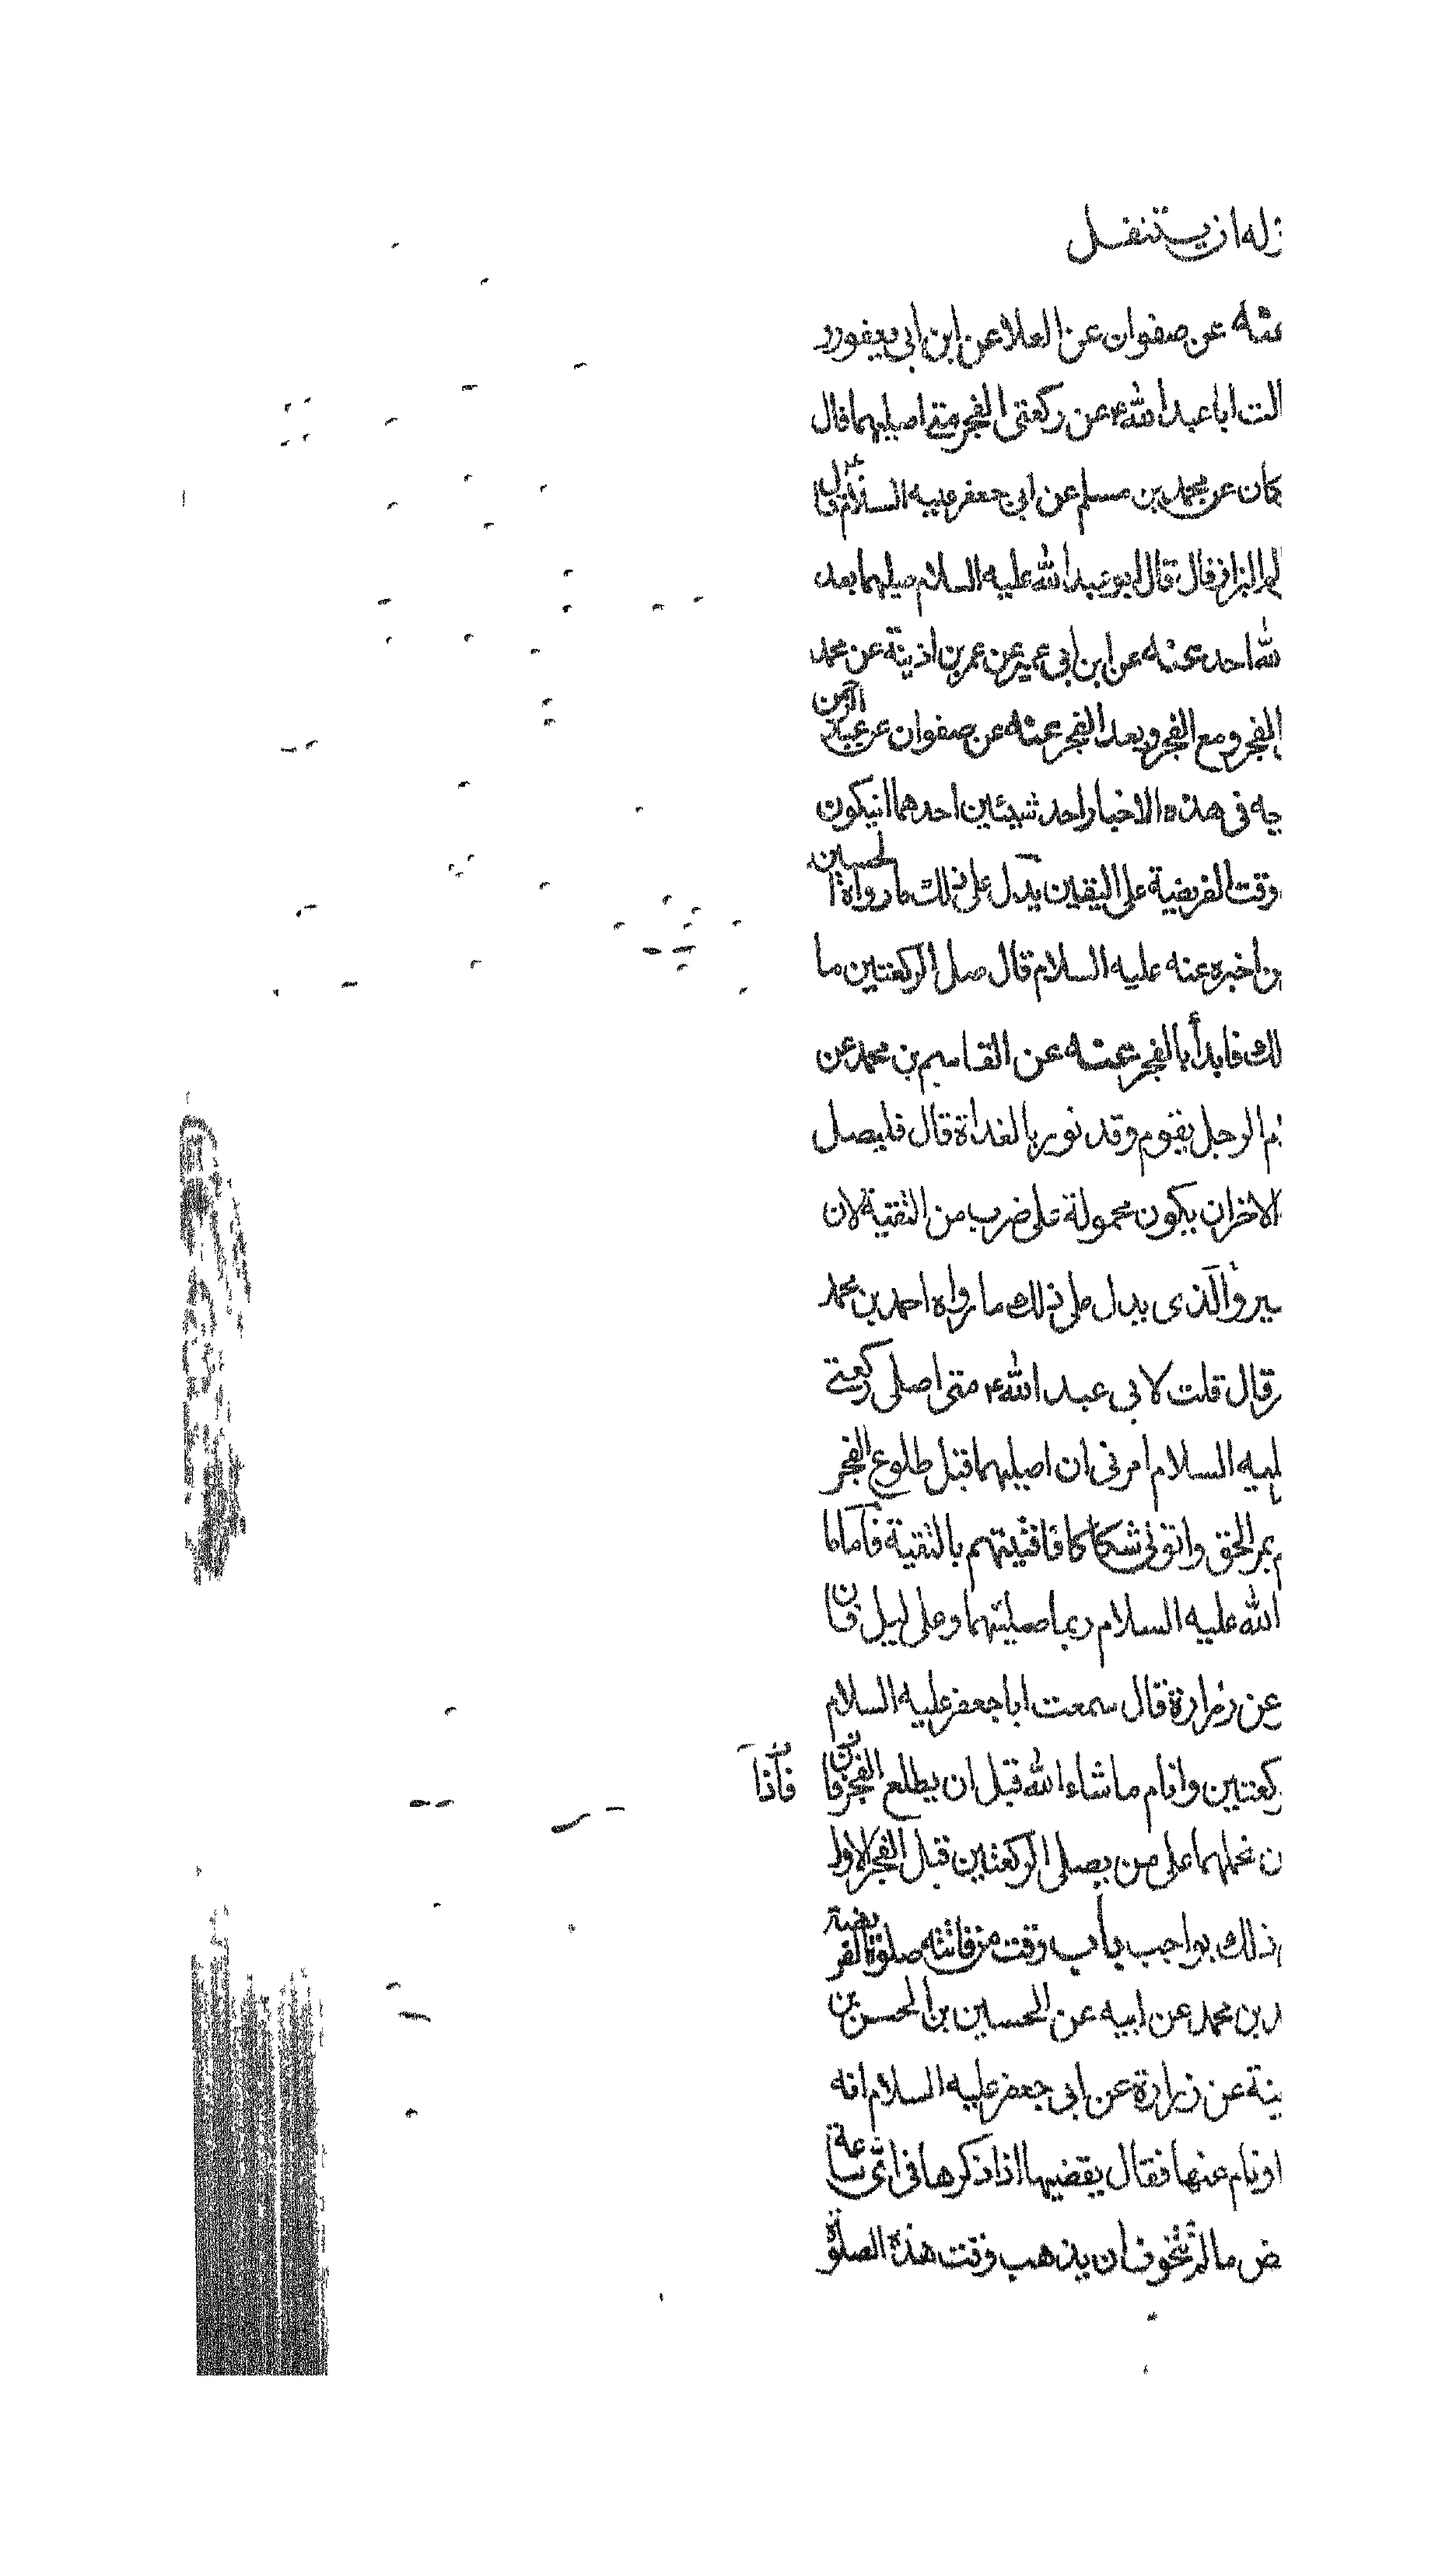 له ان يتنفل
عنه عن صفوان عن العلا عن ابن ابي يعفور
الت ابا عبد الله ء عن ركعتي الفجر متى اصليهما قال
كان عن محمد بن مسلم عن ابي جعفر عليه السلام قال
البزاز قال قال ابو عبد الله عليه السلام صليهما بعد
الله احد عنه عن ابن ابي عمير عن عمر بن اذينة عن محمد
الفجر ومع الفجر وبعد الفجر عنه عن صفوان عن عبد الرحمن
جه في هذه الاخبار احد شيئين احدهما ان يكون
وقت الفريضة على اليقين يدل على ذلك ما رواه الحسين
من اخبره عنه عليه السلام قال صل الركعتين ما
لك فابدأ بالفجر عنه عن القاسم بن محمد عن
الرجل يقوم وقد نور بالغداة قال فليصل
الاخر ان يكون محمولة على ضرب من التقية لان
والذي يدل على ذلك ما رواه احمد بن محمد
قال قلت لابي عبد الله ء متى اصلي ركعتي
ليه السلام امرني ان اصليهما قبل طلوع الفجر
بمر الحق واتوني شكاكا فافتيتهم بالتقية فاما ما
الله عليه السلام ربما صليتهما وعلى ليل فان
عن زرارة قال سمعت ابا جعفر عليه السلام
ركعتين وانام ما شاء الله قبل ان يطلع الفجر فان فاذا
ن نحملهما على من يصلي الركعتين قبل الفجر الاول
ذلك بواجب باب وقت من فاتته صلوة الفريضة
د بن محمد عن ابيه عن الحسين بن الحسن بن
ينة عن زرارة عن ابي جعفر عليه السلام انه
او نام عنها فقال يقضيها اذا ذكرها في اي ساعة
ض ما لم يتخوف ان يذهب وقت هذه الصلوة